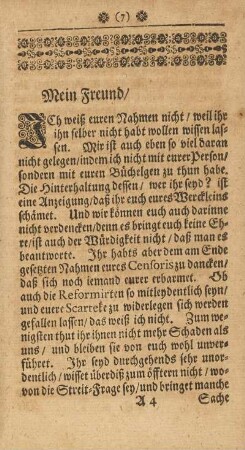 (7)
Mein Freund/
ICh weiß euren Nahmen nicht/ weil ihr
ihn selber nicht habt wollen wissen las-
sen. Mir ist auch eben so viel daran
nicht gelegen/ indem ich nicht mit eurer Person/
sondern mit euren Büchelgen zu thun habe.
Die Hinterhaltung dessen/ wer ihr seyd? ist
eine Anzeigung/ daß ihr euch eures Werckleins
schämet. Und wir können euch auch darinne
nicht verdencken/ denn es bringt euch keine Eh-
re/ ist auch der Würdigkeit nicht/ daß man es
beantworte. Ihr habts aber dem am Ende
gesetzten Nahmen eures Censoris zu dancken/
daß sich noch iemand eurer erbarmet. Ob
auch die Reformirten so mitleydentlich seyn/
und eurer Scarteke zu widerlegen sich werden
gefallen lassen/ das weiß ich nicht. Zum we-
nigsten thut ihr ihnen nicht mehr Schaden als
uns/ und bleiben sie von euch wohl unver-
führet. Ihr seyd durchgehends sehr unor-
dentlich/ wisset überdiß zum öfftern nicht/ wo-
von die Streit-Frage sey/ und bringet manche
A 4 Sache